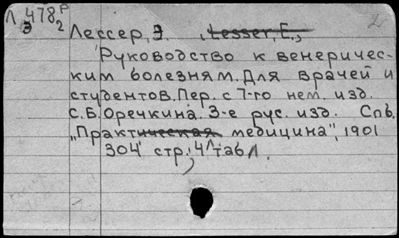 Л 478 Р
Э 2
Лессер, Э. Lesser, E.,
Руководство к венеричес-
ким болезням. Для врачей и
студентов. Пер. с 7-го нем. изд.
С.Б. Оречкина. 3-е рус. изд. Спб,
„Практическая медицина", 1901
304 стр., 4 л таб.